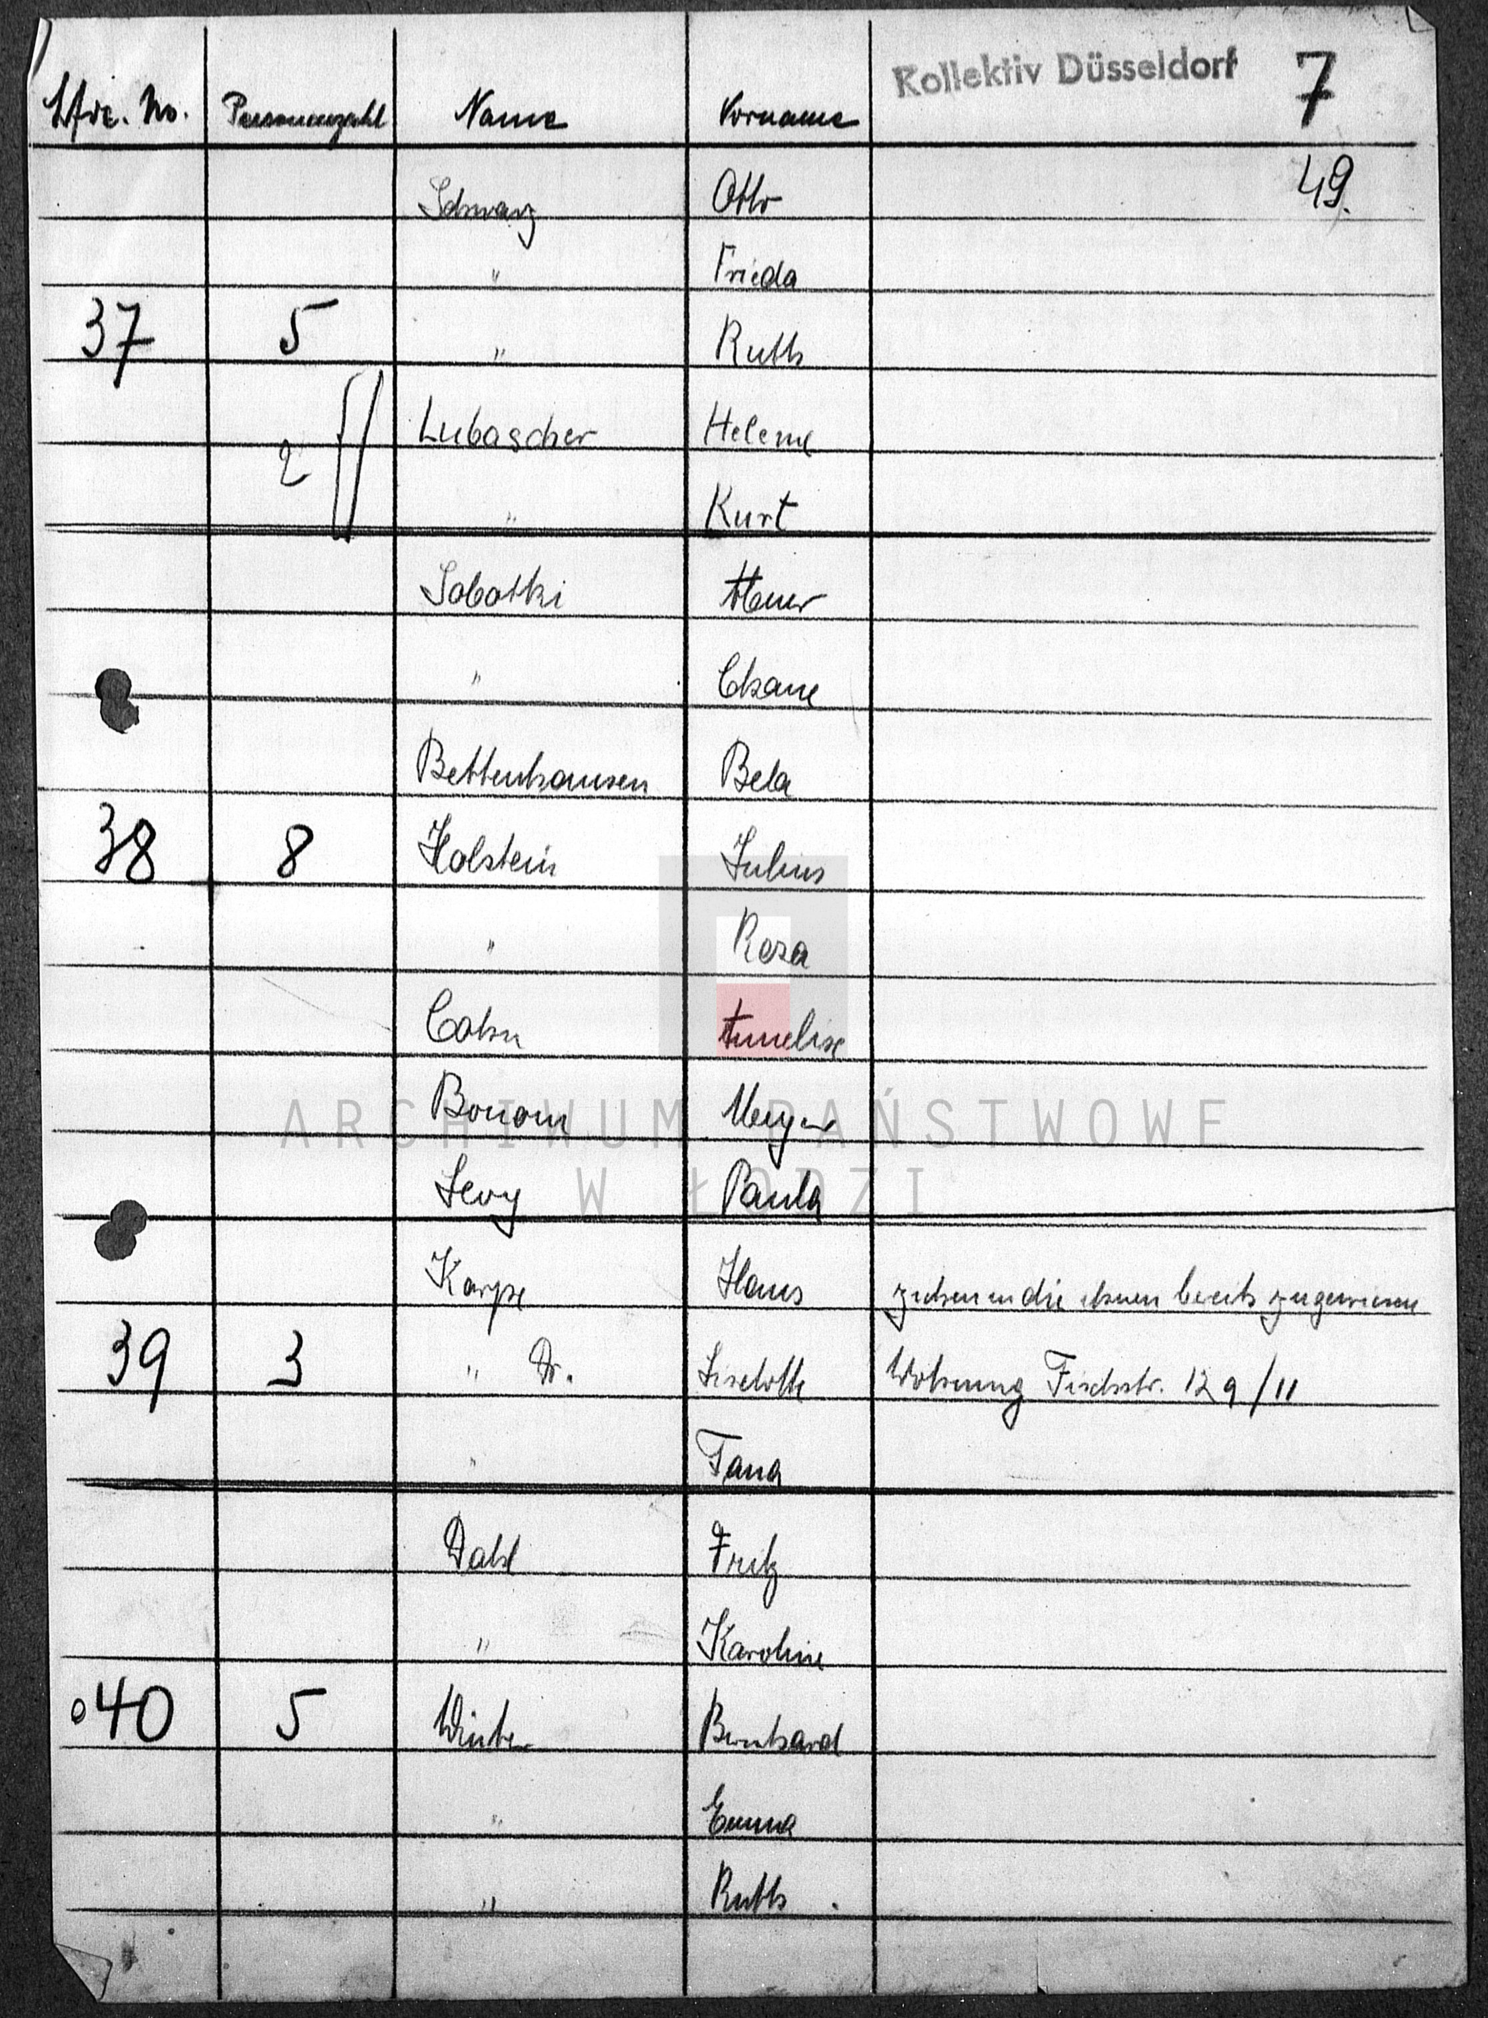 Kollektiv Düsseldorf 7
Lfde. No. Personenzahl Name Vorname
49.
Schwarz Otto
" Frieda
37 5 " Ruth
Lubascher Helene
2 " Kurt
Sobotki
" Chane
Bettenhausen Bela
38 8 Holstein Julius
" Rosa
Cohn Annelise
Meyer
Levy Paula
Karpe Hans ziehen in die ihnen bereits zugewiesene
39 3 " Dr. Liselotte Wohnung Fischstr. 129/11
" Tana
Dahl Fritz
" Karoline
40 5 Winter Bernhard
" Emma
" Ruth
ARCHIWUM PAŃSTWOWE
W ŁODZI